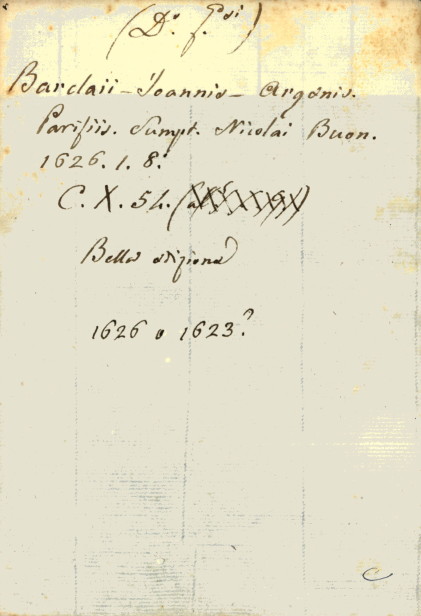 (D.s f. Gesi)
Barclaii - Joannis - Argenis.
Parisiis. Sumpt. Nicolai Buon.
1626. 1. 8.°
C. X. 54.
Bella edizione
1626 o 1623?
C